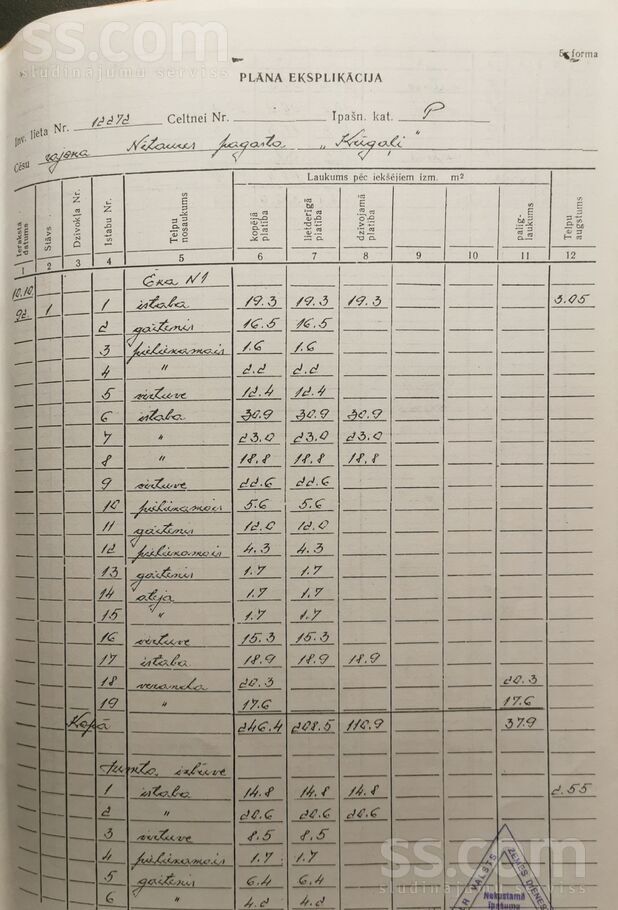 ss.com
sludinājumu serviss
Es forma
PLĀNA EKSPLIKĀCIJA
Inv. lieta Nr. 12272 Celtnei Nr. Īpašn. kat. P
Cēsu rajona Nītaures pagasta „Ķūģaļi"
Ieraksta datums Stāvs Dzīvokļa Nr. Istabu Nr. Telpu nosaukums Laukums pēc iekšējiem izm. m² Telpu augstums
kopējā platība lietderīgā platība dzīvojamā platība palīg-laukums
1 2 3 4 5 6 7 8 9 10 11 12
10.10 Ēka N1
92 1 1 istaba 19.3 19.3 19.3 3.05
2 gaitenis 16.5 16.5
3 pieliekamais 1.6 1.6
4 " 2.2 2.2
5 virtuve 12.4 12.4
6 istaba 30.9 30.9 30.9
7 " 23.0 23.0 23.0
8 " 18.8 18.8 18.8
9 virtuve 22.6 22.6
10 pieliekamais 5.6 5.6
11 gaitenis 12.0 12.0
12 pieliekamais 4.3 4.3
13 gaitenis 1.7 1.7
14 ateja 1.7 1.7
15 " 1.7 1.7
16 virtuve 15.3 15.3
17 istaba 18.9 18.9 18.9
18 veranda 20.3 20.3
19 " 17.6 17.6
Kopā 246.4 208.5 110.9 37.9
Jumta izbūve
1 istaba 14.8 14.8 14.8 2.55
2 " 20.6 20.6 20.6
3 virtuve 8.5 8.5
4 pieliekamais 1.7 1.7
5 gaitenis 6.4 6.4
6 " 4.2 4.2
LR VALSTS ZEMES DIENES
Nekustamā
īpašuma
ss.com
sludinājumu serviss